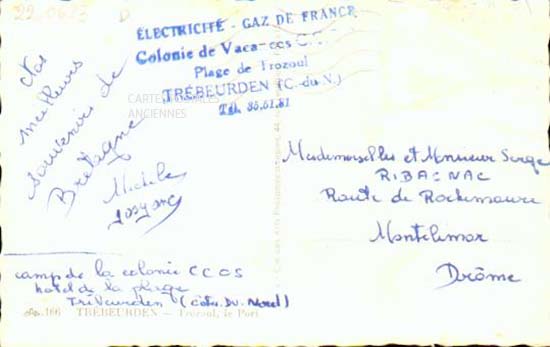 22.0613 D
ÉLECTRICITÉ - GAZ DE FRANCE
Colonie de Vacances
Plage de Trozoul
TRÉBEURDEN (C.-du-N.)
Tél. 35.51.81
CARTES POSTALES
ANCIENNES
meilleurs
souvenirs de
Bretagne
Michele
Josyane
Mademoiselles et Monsieur Serge
RIBAGNAC
Route de Rochemaure
Montelimar
Drôme
camp de la colonie CCOS
hotel de la plage
Trébeurden (Côtes. Du. Nord)
166 TRÉBEURDEN — Trozoul, le Port